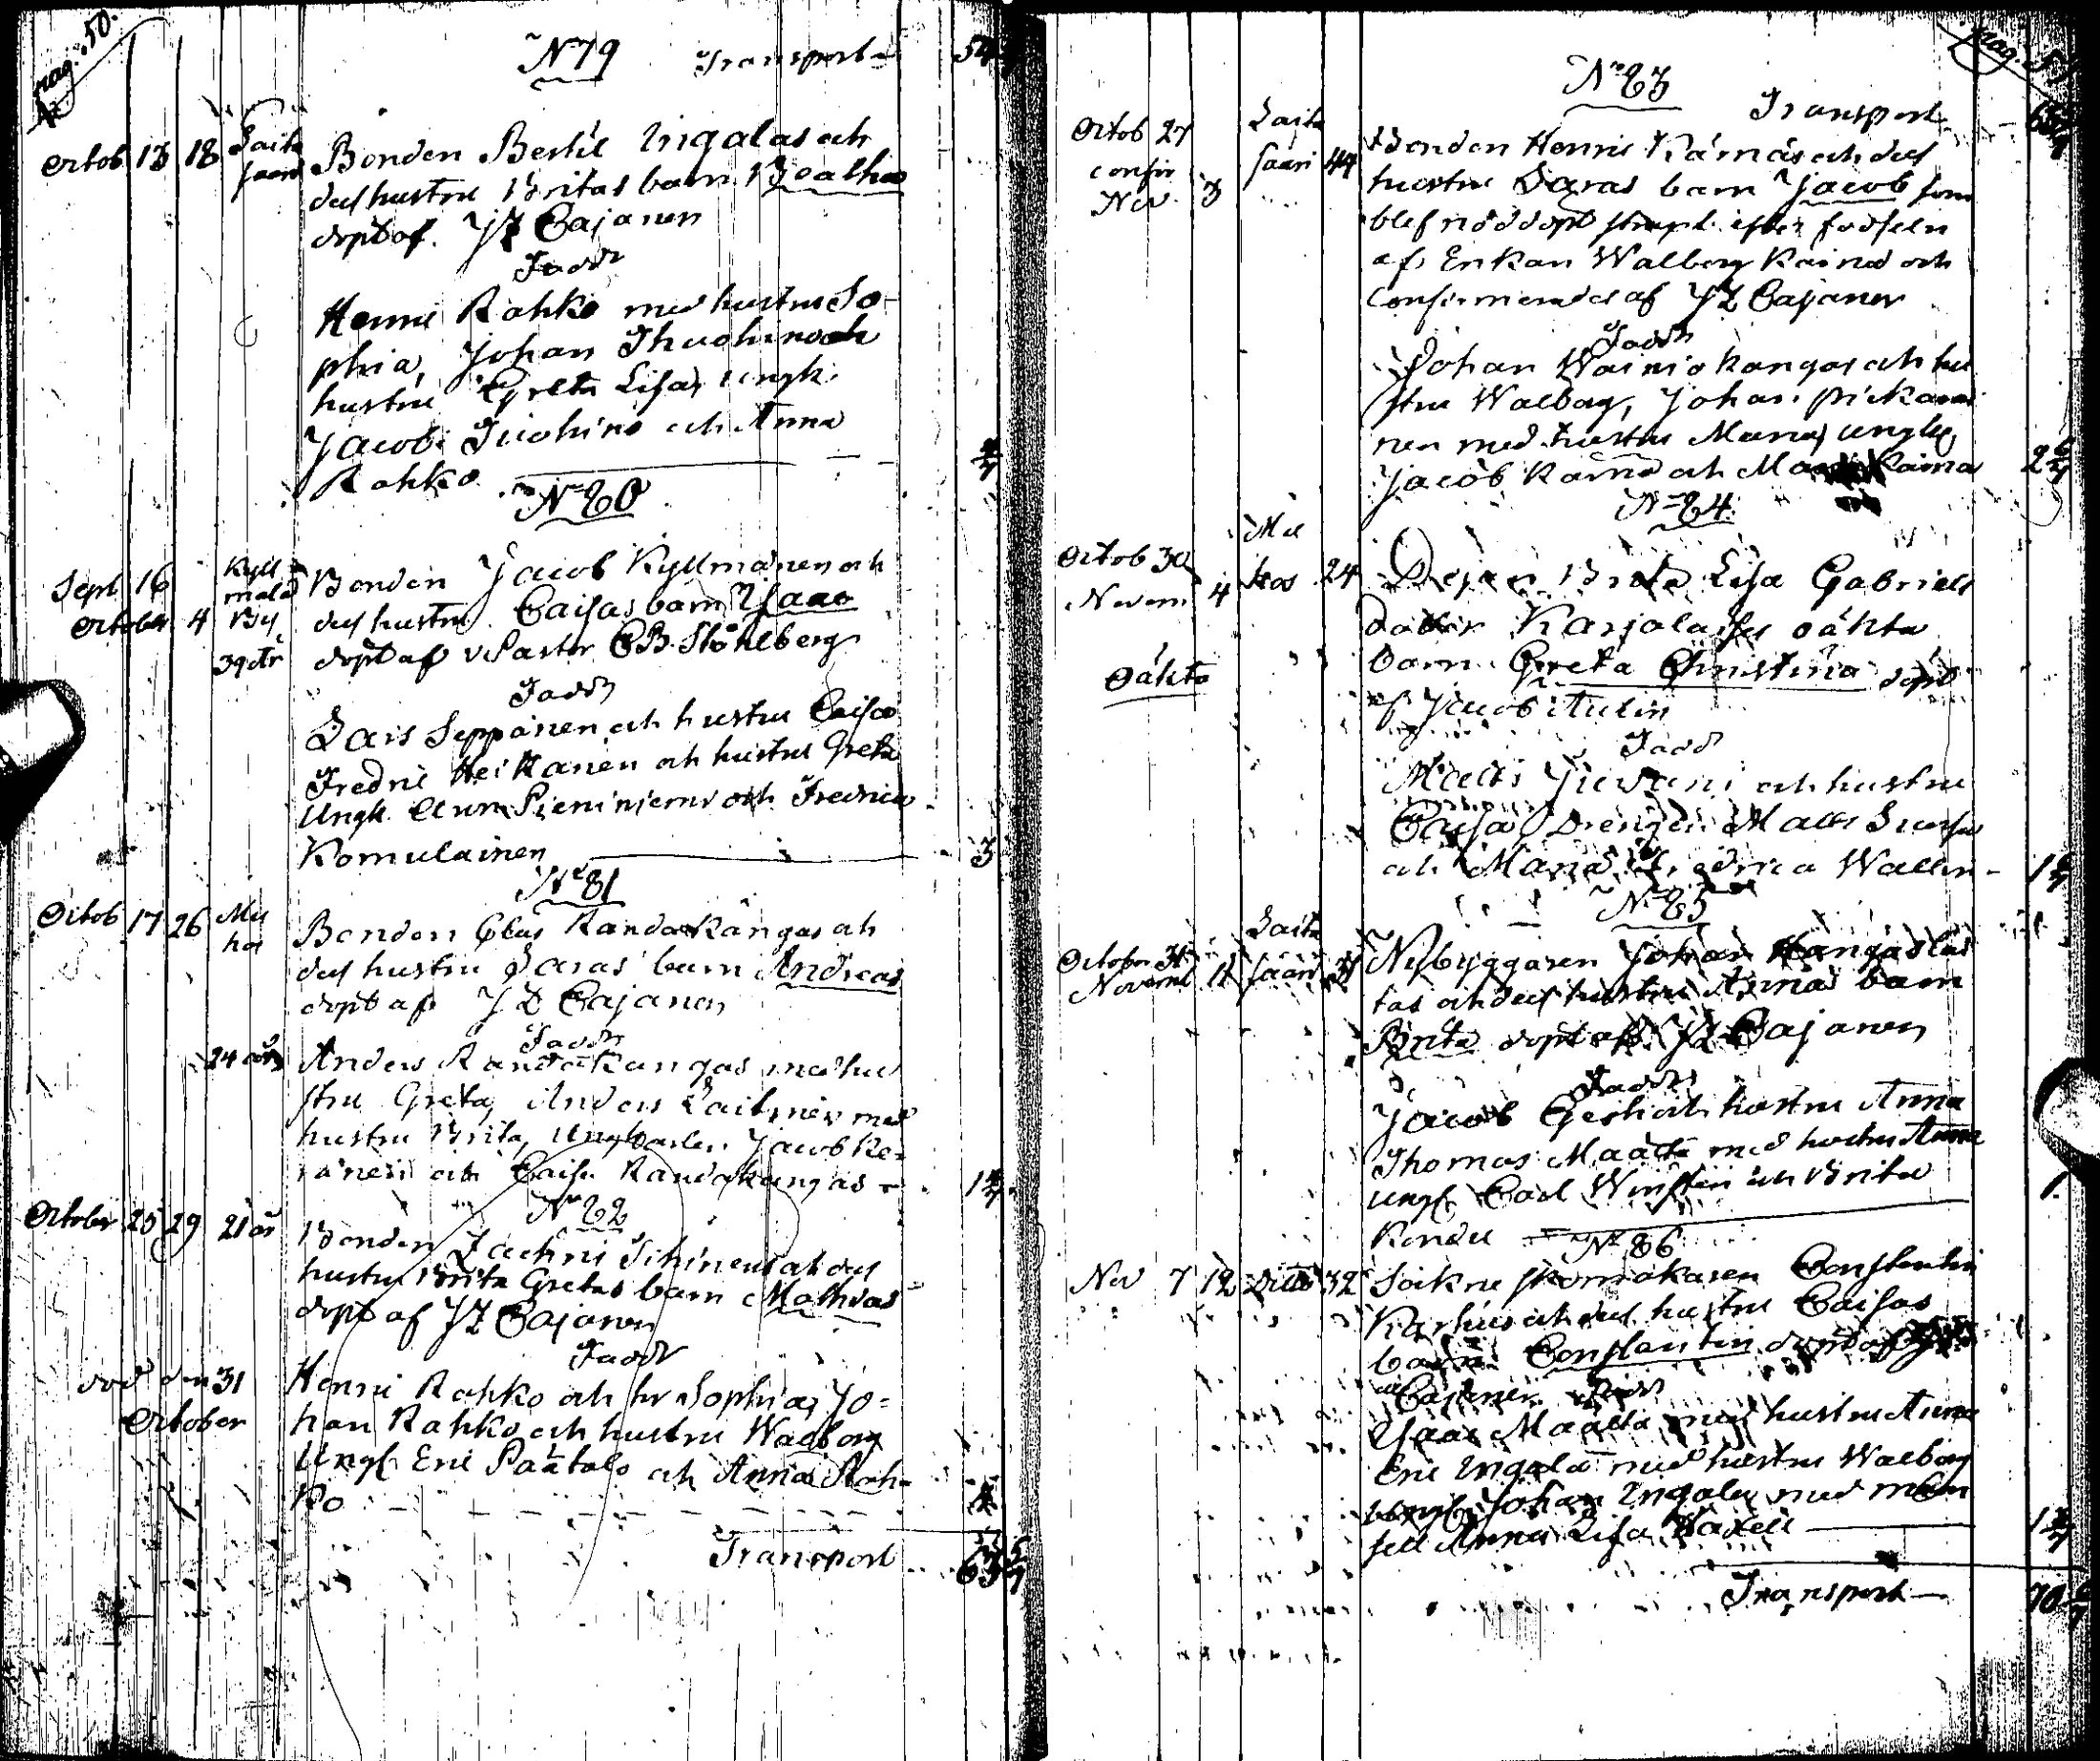 pag. 50.
N 79 Transport
Octob 13 18 Saita
saari
Bonden Bertil Ingalas och
des hustru Britas barn Beatha
döpt af JZ Cajanen
Fadd
Henric Rahko med hustru So-
phia, Johan Thuohino och
hustru Greta Lisa, ungk.
Jacob Tuohino och Anna
Rahko
N 80
Sept 16
October 4
Kyll
mälä
By
39 år
Bonden Jacob Kyllmänen och
des hustru Caisas barn Isaac
döpt af v Pastor CB. Ståhlberg
Fadd
Lars Seppänen och hustru Caisa
Fredric Heikkanen och hustru Greta
Ungk. och Fredrica
Komulainen 3
N 81
Octob 17 26 Mu
hos
Bonden Elias Randakangas och
des hustru Saras barn Andreas
döpt af JZ Cajanen
Fadd
24 år
Anders Randakangas med hu
stru Greta, Anders Laitinen med
hustru Brita, Jacob Ke-
ränen och Caisa Randakangas
N 82
October 25 29 21 år
Bonden Zachris Tihinens och des
hustru Brita Gretas barn Mathias
döpt af JZ Cajanen
Fadd
död den 31
October
Henric Rahko och hr Sophia, Jo=
han Rahko och hustru Walborg
Ungk Eric Päätalo och Anna Rah-
ko
Transport 63 5/7
pag. 51
N 83
Transport
Octob 27
confir
Nov. 3
Saita
saari 44
Bonden Henric Kärnäs och des
hustru Saras barn Jacob som
blef nöddöpt straxt efter födseln
af Enkan Walborg Kärnä och
confirmerades af JZ Cajanen
Fadd
Johan Wainiokangas och hu
stru Walborg, Johan Pickarai
nen med hustru Maria, ungk
Jacob Kärnä och Kärnä
N 84
Octob 30
Novem 4
Mu
hos 24
Oäkta
Pigan Brita Lisa Gabriels
dotter Karjalaises oäkta
barn Greta Christina döpt
af Jacob Aulin
Fadd
Matts och hustru
Caisa, Drengen Matts
och Maria Fredrica Wallin
N 85
October 31
Novemb 11
Saita
saari
Nybyggaren Johan Kangaslas
tas och des hustru Annas barn
Brita döpt af JZ Cajanen
Fadd
Jacob och hustru Anna
Thomas Määttä med hustru Anna
ungk Carl och Brita
1.
N 86
Nov 7 12 Ditto 32
Sockne skomakaren Constantin
Karhus och des hustru Caisas
barn Constantin döpt af
Cajanen Fadd
Isaac Määttä med hustru Anna
Eric Ingala med hustru Walborg
ungk Johan Ingala med mam
sell Anna Lisa
Transport 70